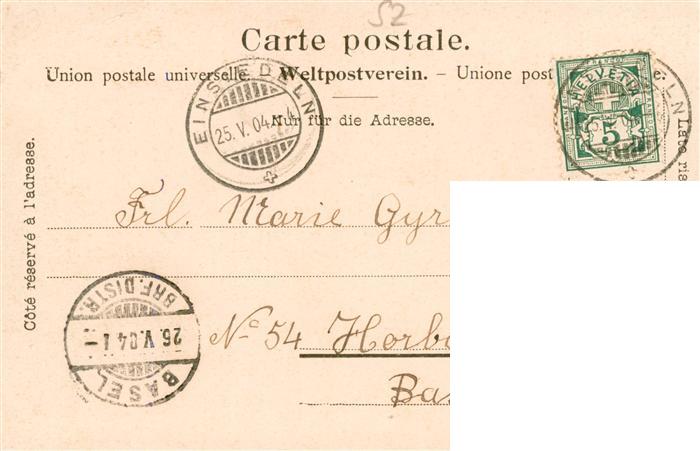 52
Carte postale.
Union postale universelle. Weltpostverein. – Unione
Nur für die Adresse.
Côté réservé à l'adresse.
EINSIEDELN
25. V. 04
FRANCO
HELVETIA
5
Frl. Marie
No 54
BRF. DISTR.
26. V. 04
BASEL